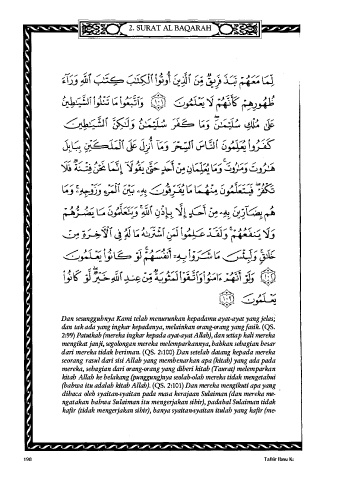 2. SURAT AL BAQARAH
لِّمَا مَعَهُمْ نَبَذَ فَرِيقٌ مِّنَ الَّذِينَ أُوتُوا الْكِتَابَ كِتَابَ اللَّهِ وَرَاءَ
ظُهُورِهِمْ كَأَنَّهُمْ لَا يَعْلَمُونَ ﴿١٠١﴾ وَاتَّبَعُوا مَا تَتْلُوا الشَّيَاطِينُ
عَلَىٰ مُلْكِ سُلَيْمَانَ وَمَا كَفَرَ سُلَيْمَانُ وَلَٰكِنَّ الشَّيَاطِينَ
كَفَرُوا يُعَلِّمُونَ النَّاسَ السِّحْرَ وَمَا أُنزِلَ عَلَى الْمَلَكَيْنِ بِبَابِلَ
هَارُوتَ وَمَارُوتَ وَمَا يُعَلِّمَانِ مِنْ أَحَدٍ حَتَّىٰ يَقُولَا إِنَّمَا نَحْنُ فِتْنَةٌ فَلَا
تَكْفُرْ فَيَتَعَلَّمُونَ مِنْهُمَا مَا يُفَرِّقُونَ بِهِ بَيْنَ الْمَرْءِ وَزَوْجِهِ وَمَا
هُم بِضَارِّينَ بِهِ مِنْ أَحَدٍ إِلَّا بِإِذْنِ اللَّهِ وَيَتَعَلَّمُونَ مَا يَضُرُّهُمْ
وَلَا يَنفَعُهُمْ وَلَقَدْ عَلِمُوا لَمَنِ اشْتَرَاهُ مَا لَهُ فِي الْآخِرَةِ مِنْ
خَلَاقٍ وَلَبِئْسَ مَا شَرَوْا بِهِ أَنفُسَهُمْ لَوْ كَانُوا يَعْلَمُونَ
﴿١٠٢﴾ وَلَوْ أَنَّهُمْ آمَنُوا وَاتَّقَوْا لَمَثُوبَةٌ مِّنْ عِندِ اللَّهِ خَيْرٌ لَّوْ كَانُوا
يَعْلَمُونَ ﴿١٠٣﴾
Dan sesungguhnya Kami telah menurunkan kepadamu ayat-ayat yang jelas;
dan tak ada yang ingkar kepadanya, melainkan orang-orang yang fasik. (QS.
2:99) Patutkah (mereka ingkar kepada ayat-ayat Allah), dan setiap kali mereka
mengikat janji, segolongan mereka melemparkannya, bahkan sebagian besar
dari mereka tidak beriman. (QS. 2:100) Dan setelah datang kepada mereka
seorang rasul dari sisi Allah yang membenarkan apa (kitab) yang ada pada
mereka, sebagian dari orang-orang yang diberi kitab (Taurat) melemparkan
kitab Allah ke belakang (punggung)nya seolah-olah mereka tidak mengetahui
(bahwa itu adalah kitab Allah). (QS. 2:101) Dan mereka mengikuti apa yang
dibaca oleh syaitan-syaitan pada masa kerajaan Sulaiman (dan mereka me-
ngatakan bahwa Sulaiman itu mengerjakan sihir), padahal Sulaiman tidak
kafir (tidak mengerjakan sihir), hanya syaitan-syaitan itulah yang kafir (me-
198
Tafsir Ibnu Ka